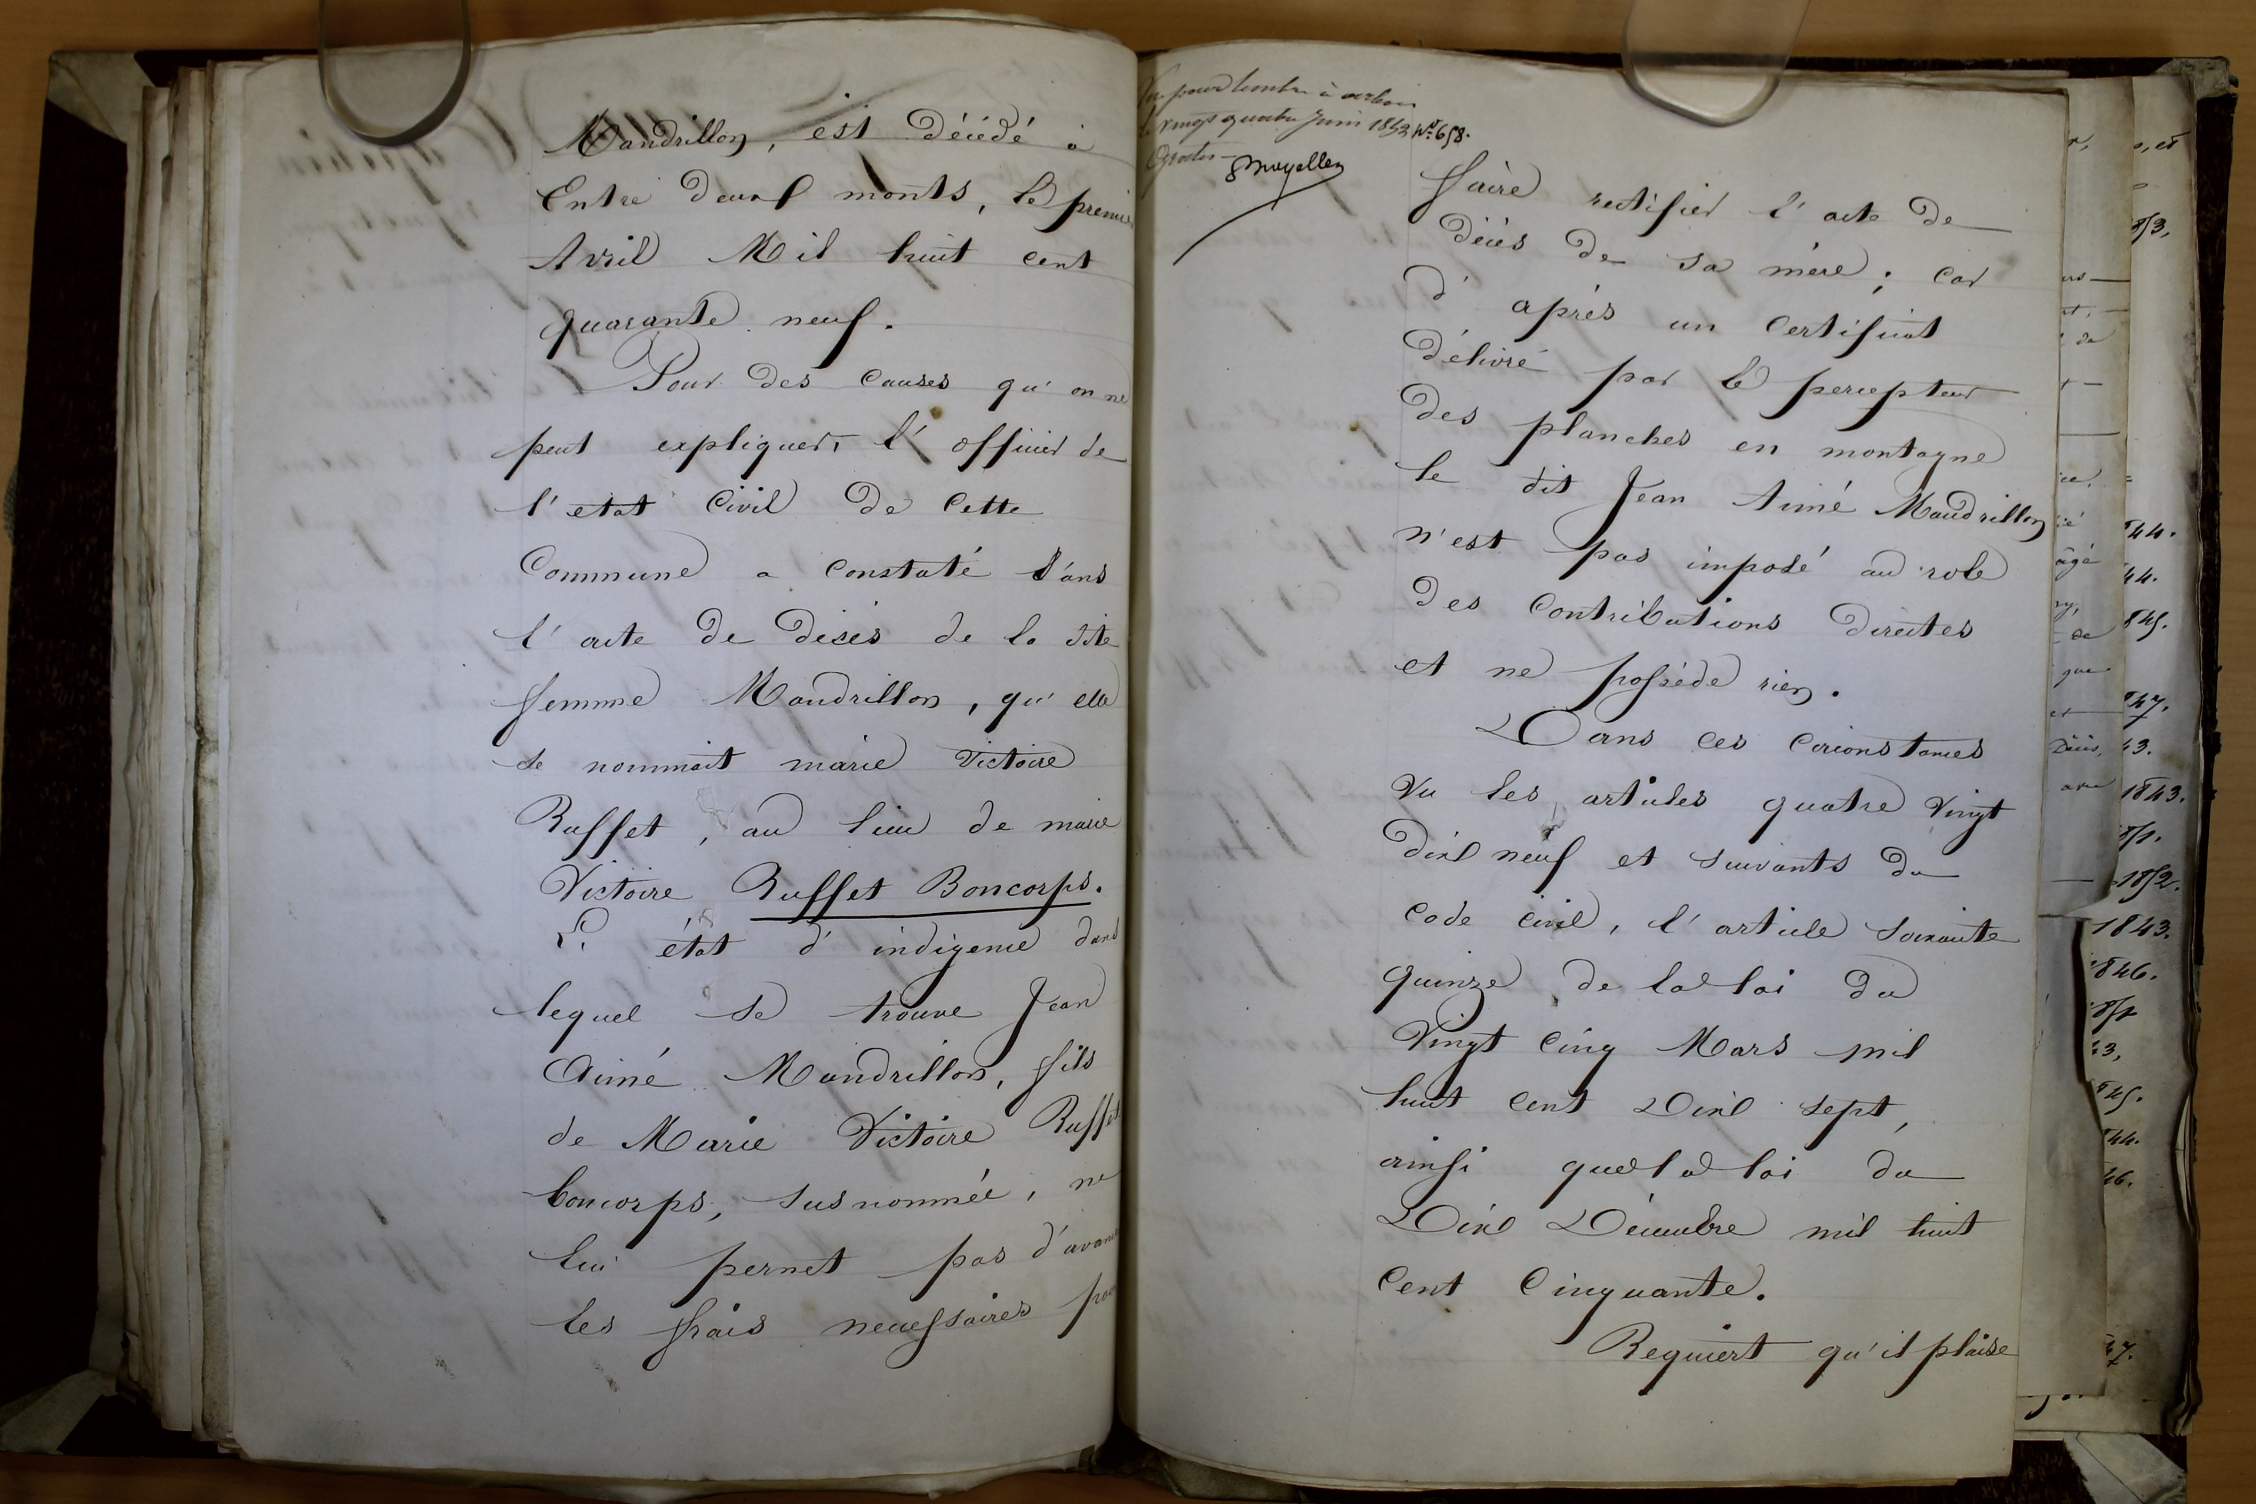 Mandrillon, est décédé à
Entre deux monts, le premier
Avril Mil huit cent
quarante neuf.
Pour des causes qu'on ne
peut expliquer, l'officier de
l'etat civil de cette
Commune a constaté dans
l'acte de décès de la dite
femme Mandrillon, qu'elle
se nommait marie Victoire
Ruffet, au lieu de marie
Victoire Ruffet Boncorps.
L'état d'indigence dans
lequel se trouve Jean
Aimé Mandrillon, fils
de Marie Victoire Ruffet
boncorps, susnommée, ne
lui permet pas d'avancer
les frais necessaires pour
Vu pour timbre à arbois
le vingt quatre Juin 1852 No. 658.
Gratis
faire rectifier l'acte de
décès de sa mère; car
d'après un certificat
délivré par le percepteur
des planches en montagne
le dit Jean Aimé Mandrillon
n'est pas imposé au role
des contributions directes
et ne possède rien.
Dans ces circonstances
Vu les articles quatre vingt
dix neuf et suivants du
code civil, l'article soixante
quinze de la loi du
Vingt cinq Mars mil
huit cent Dix sept,
ainsi que la loi du
Dix Décembre mil huit
cent Cinquante.
Requiert qu'il plaise